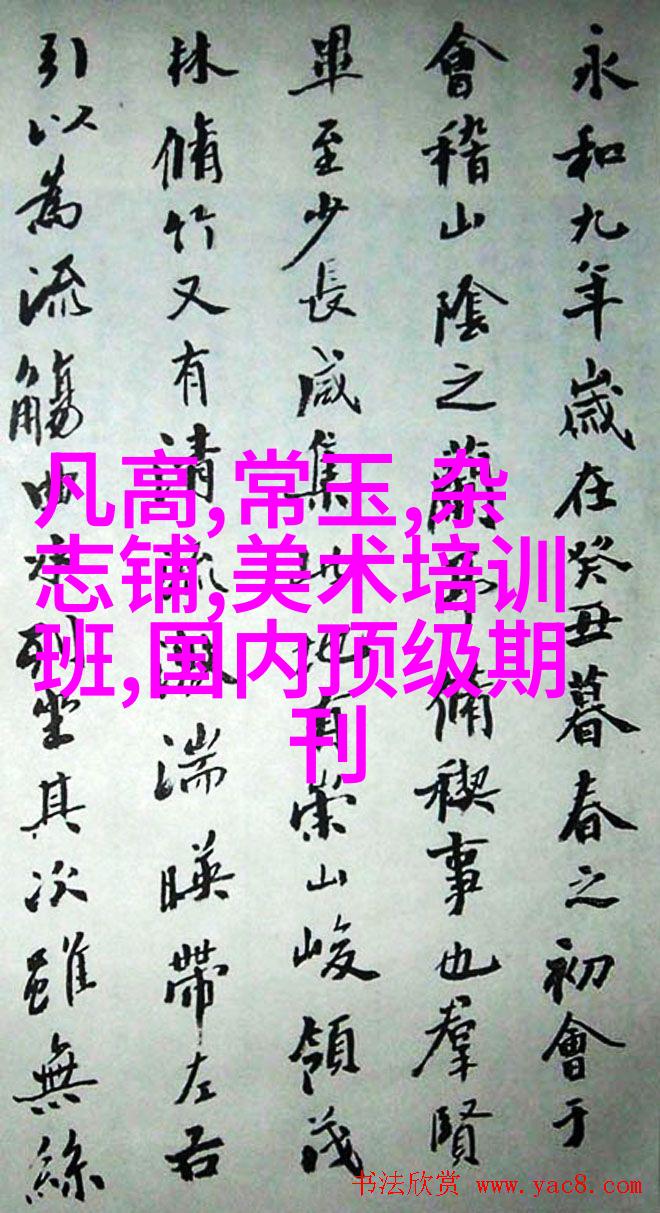 永和九年歲在癸丑暮春之初會于
會稽山陰之蘭亭脩稧事也羣賢
畢至少長咸集此地有崇山峻領茂
林脩竹又有清流激湍暎帶左右
引以為流觴曲水列坐其次雖無絲
凡高,常玉,杂
志铺,美术培训
班,国内顶级期
刊
书法欣赏 www.yac8.com